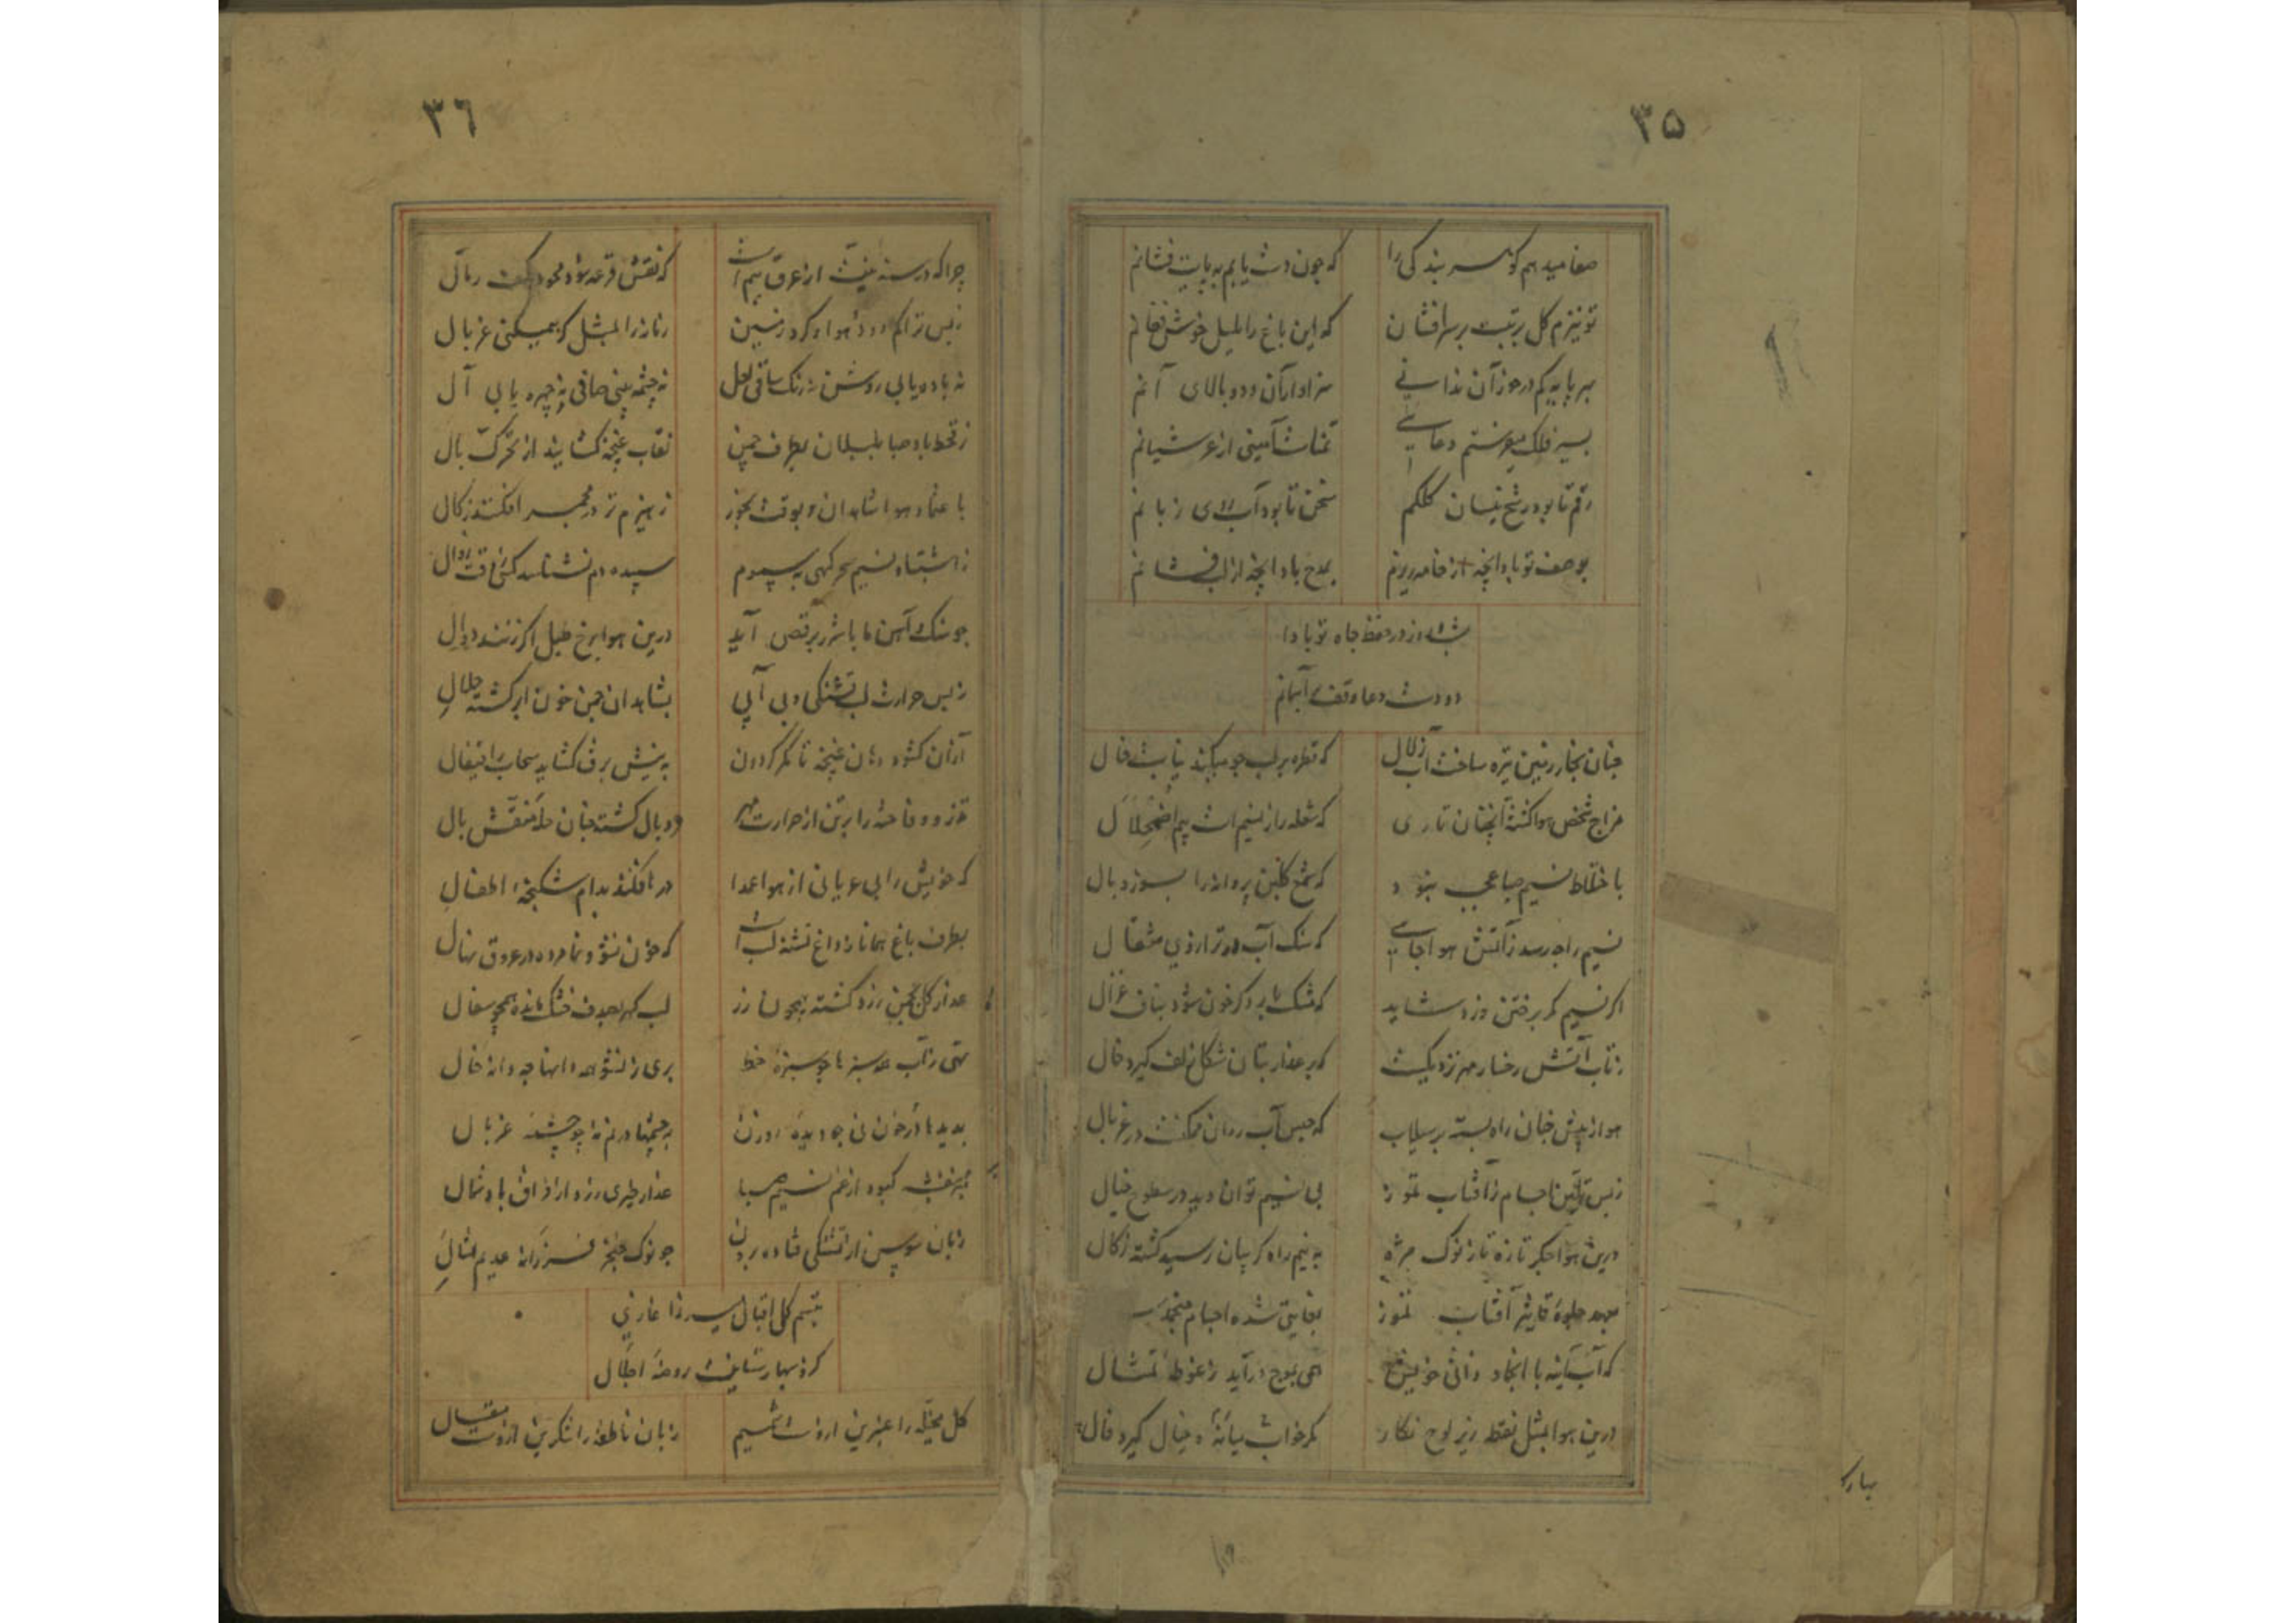 ۳۵
صفا میدهم گوهر بندگی را که چون دست یابم به پایت فشانم
تو نیزم گل تربیت بر سر افشان که این باغ را بلبل خوش فغانم
بهر پایه کم درخور آن ندانی سزاوار آن و دو بالای آنم
بسیر فلک میفرستم دعایی تمناست آمینی از عرشیانم
رقم تا بود رشح نیسان کلکم سخن تا بود آب لای زبانم
بوصف تو باد آنچه از خامه ریزم بمدح باد آنچه از لب فشانم
شب و روز در حفظ جاه تو بادا
دو دست دعا وقف آسمانم
چنان بخار زمین تیره ساخت آب زلال که قطره بر لب جو میکند نیابت خال
مزاج شخص هوا گشته آنچنان ناری که شعله را ز نسیم است بیم اضمحلال
باختلاط نسیم صبا عجب نبود که شمع گلبن پروانه را بسوزد بال
نسیم را چه رسد ز آتش هوا جایی که سنگ آب شود در ترازوی مثقال
اگر نسیم کمر بر ختن وزد شاید که مشک بار دگر خون شود بناف غزال
ز تاب آتش رخسار مهر نزدیکست که بر عذار بتان شکل زلف گیرد خال
هوا ز پیش چنان راه بسته بر سیلاب که حبس آب روان ممکنست در غربال
زبس تراجسام ز آفتاب تموز بی نسیم توان دید در سطوح خیال
درین هوا جگر تازه تا ز نوک مژه به نیم راه گریبان رسید گشته زکال
بعهد جلوه تاثیر آفتاب تموز بغایتی شده اجسام منجمد
که آب آینه با انجماد ذاتی خویش همی بموج درآید ز غوطه تمثال
درین هوا بمثل نقطه زیر لوح نگار گیرد فال
۳۶
چرا که در سنه نیست از عرق بیم است که نقش قرعه شود محو در کف رمال
زبس تراکم دود هوا و گرد زمین زمانه را بمثل گر همیکنی غربال
نه باده یابی روشن نه رنگ ساقی لعل نه چشمه بینی صافی نه چهره یابی آل
ز قحط باد صبا بلبلان بطرف چمن نقاب غنچه گشایند از تحرک بال
باعتماد هوا شاهدان بوقت بخور ز هیزم تر در مجمر افکنند زکال
ز اشتباه نسیم سحرگهی به سموم سپیده دم نشناسد کس از وقت زوال
چو سنگ آهن ما با شرر برقص آید درین هوا برخ طبل اگر زنند دوال
زبس حرارت لب تشنگی و بی آبی بشاهدان چمن خون ابر گشته حلال
از آن گشوده دهان غنچه تا مگر گردون به نیش برق گشاید سحاب را قیفال
تذرو و فاخته را بر تن از حرارت مهر وبال گشته چنان حله منقش بال
که خویش را بی عریانی از هوا عمدا درافکنند بدام شکنجه اطفال
بطرف باغ همانا ز داغ تشنه لب است که خون نشو و نما مرده در عروق نهال
عذار گل بچمن زرد گشته همچون زر لب گهر بصدف خشک مانده همچو سفال
تهی ز آب سبزها چو سبزه خط بری ز نشو دانها چو دانه خال
بدیدها در خون نی چو دیده روزن به چشمها در نم نه چو چشمه غربال
بنفشه کبود از غم نسیم صبا عذار خیری زرد از فراق باد شمال
زبان سوسن از تشنگی فتاده برون چو نوک خنجر فرزانه عدیم مثال
تبسم گل اقبال میرزا غازی
کزو بهار ستانیست روضه اجلال
گل مخیله را عنبرین ازوست شمیم زبان ناطقه را شکرین ازوست مقال